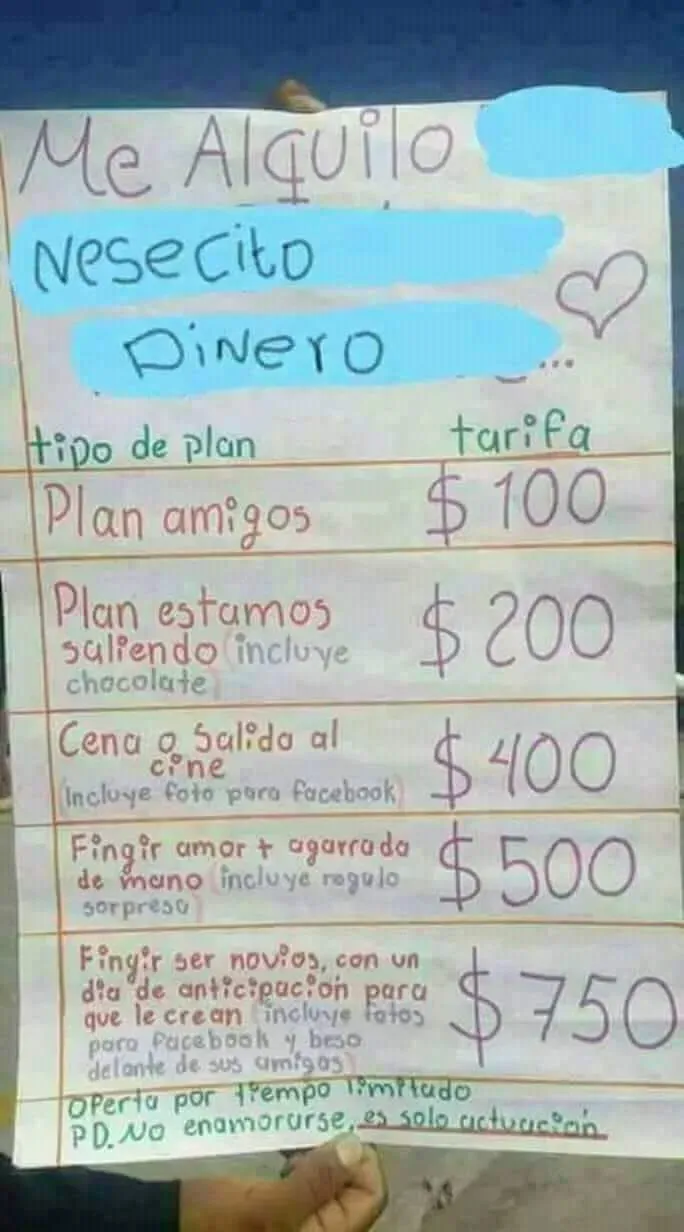 Me Alquilo
Nesecito
Dinero
...
tipo de plan tarifa
Plan amigos $ 100
Plan estamos
saliendo (incluye
chocolate)
$ 200
Cena o Salida al
cine
(incluye foto para facebook)
$ 400
Fingir amor + agarrada
de mano (incluye regalo
sorpresa)
$ 500
Fingir ser novios, con un
dia de anticipación para
que le crean (incluye fotos
para facebook y beso
delante de sus amigas)
$ 750
Oferta por tiempo limitado
PD. No enamorarse, es solo actuación